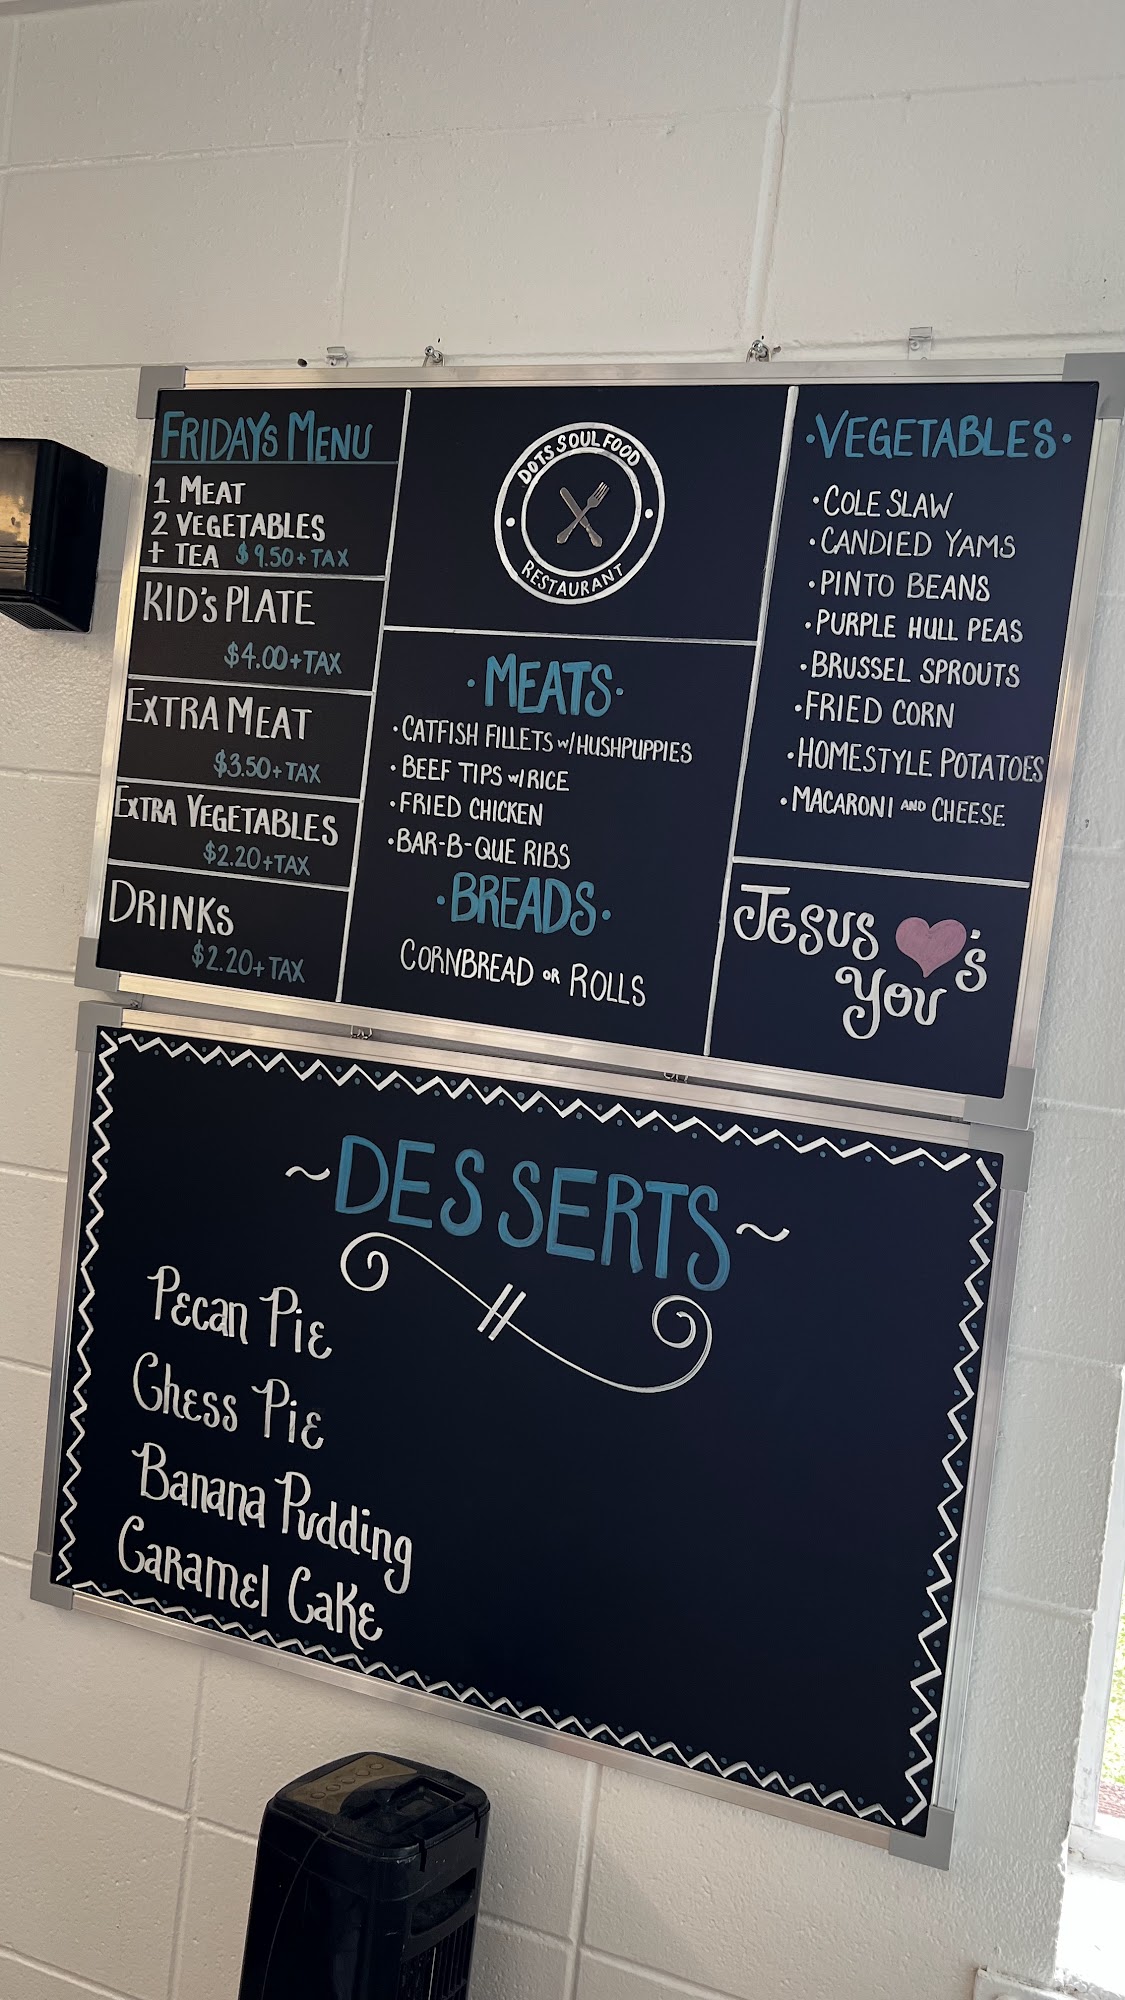 FRIDAYS MENU
1 MEAT
2 VEGETABLES
+ TEA $9.50+TAX
KID'S PLATE
$4.00+TAX
EXTRA MEAT
$3.50+TAX
EXTRA VEGETABLES
$2.20+TAX
DRINKS
$2.20+TAX
DOTS SOUL FOOD
RESTAURANT
·MEATS·
·CATFISH FILLETS w/HUSHPUPPIES
·BEEF TIPS w/RICE
·FRIED CHICKEN
·BAR-B-QUE RIBS
·BREADS·
CORNBREAD OR ROLLS
·VEGETABLES·
·COLE SLAW
·CANDIED YAMS
·PINTO BEANS
·PURPLE HULL PEAS
·BRUSSEL SPROUTS
·FRIED CORN
·HOMESTYLE POTATOES
·MACARONI AND CHEESE
JESUS ♥'S
YOU
~DESSERTS~
Pecan Pie
Chess Pie
Banana Pudding
Caramel Cake